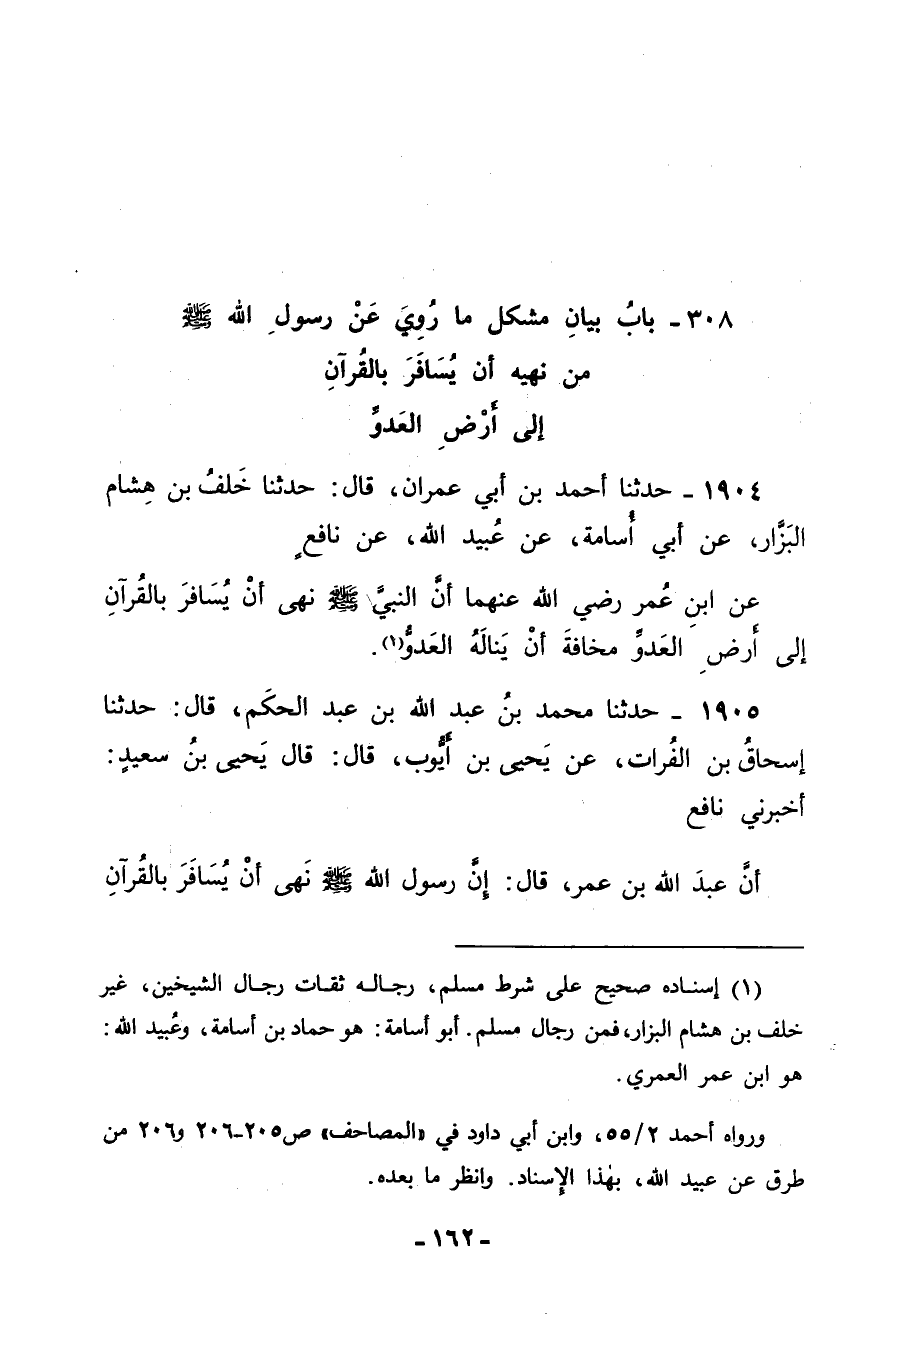 ٣٠٨ - بابُ بيانِ مشكل ما رُوِيَ عَنْ رسولِ الله ﷺ
من نهيه أن يُسَافَرَ بالقُرآنِ
إلى أَرْضِ العَدوِّ
١٩٠٤ - حدثنا أحمد بن أبي عمران، قال: حدثنا خَلفُ بن هِشام
البَزَّار، عن أبي أُسامة، عن عُبيد الله، عن نافعٍ
عن ابنِ عُمر رضي الله عنهما أنَّ النبيَّ ﷺ نهى أنْ يُسَافرَ بالقُرآنِ
إلى أَرضِ العَدوِّ مخافةَ أنْ يَنالَهُ العَدوُّ(١).
١٩٠٥ - حدثنا محمد بنُ عبد الله بن عبد الحكَم، قال: حدثنا
إسحاقُ بن الفُرات، عن يَحيى بن أَيُّوب، قال: قال يَحيى بنُ سعيدٍ:
أخبرني نافع
أنَّ عبدَ الله بن عمر، قال: إِنَّ رسول الله ﷺ نَهى أنْ يُسَافَرَ بالقُرآنِ
(١) إسناده صحيح على شرط مسلم، رجاله ثقات رجال الشيخين، غير
خلف بن هشام البزار، فمن رجال مسلم. أبو أسامة: هو حماد بن أسامة، وعُبيد الله:
هو ابن عمر العمري.
ورواه أحمد ٥٥/٢، وابن أبي داود في «المصاحف» ص٢٠٥-٢٠٦ و٢٠٦ من
طرق عن عبيد الله، بهٰذا الإِسناد. وانظر ما بعده.
- ١٦٢ -